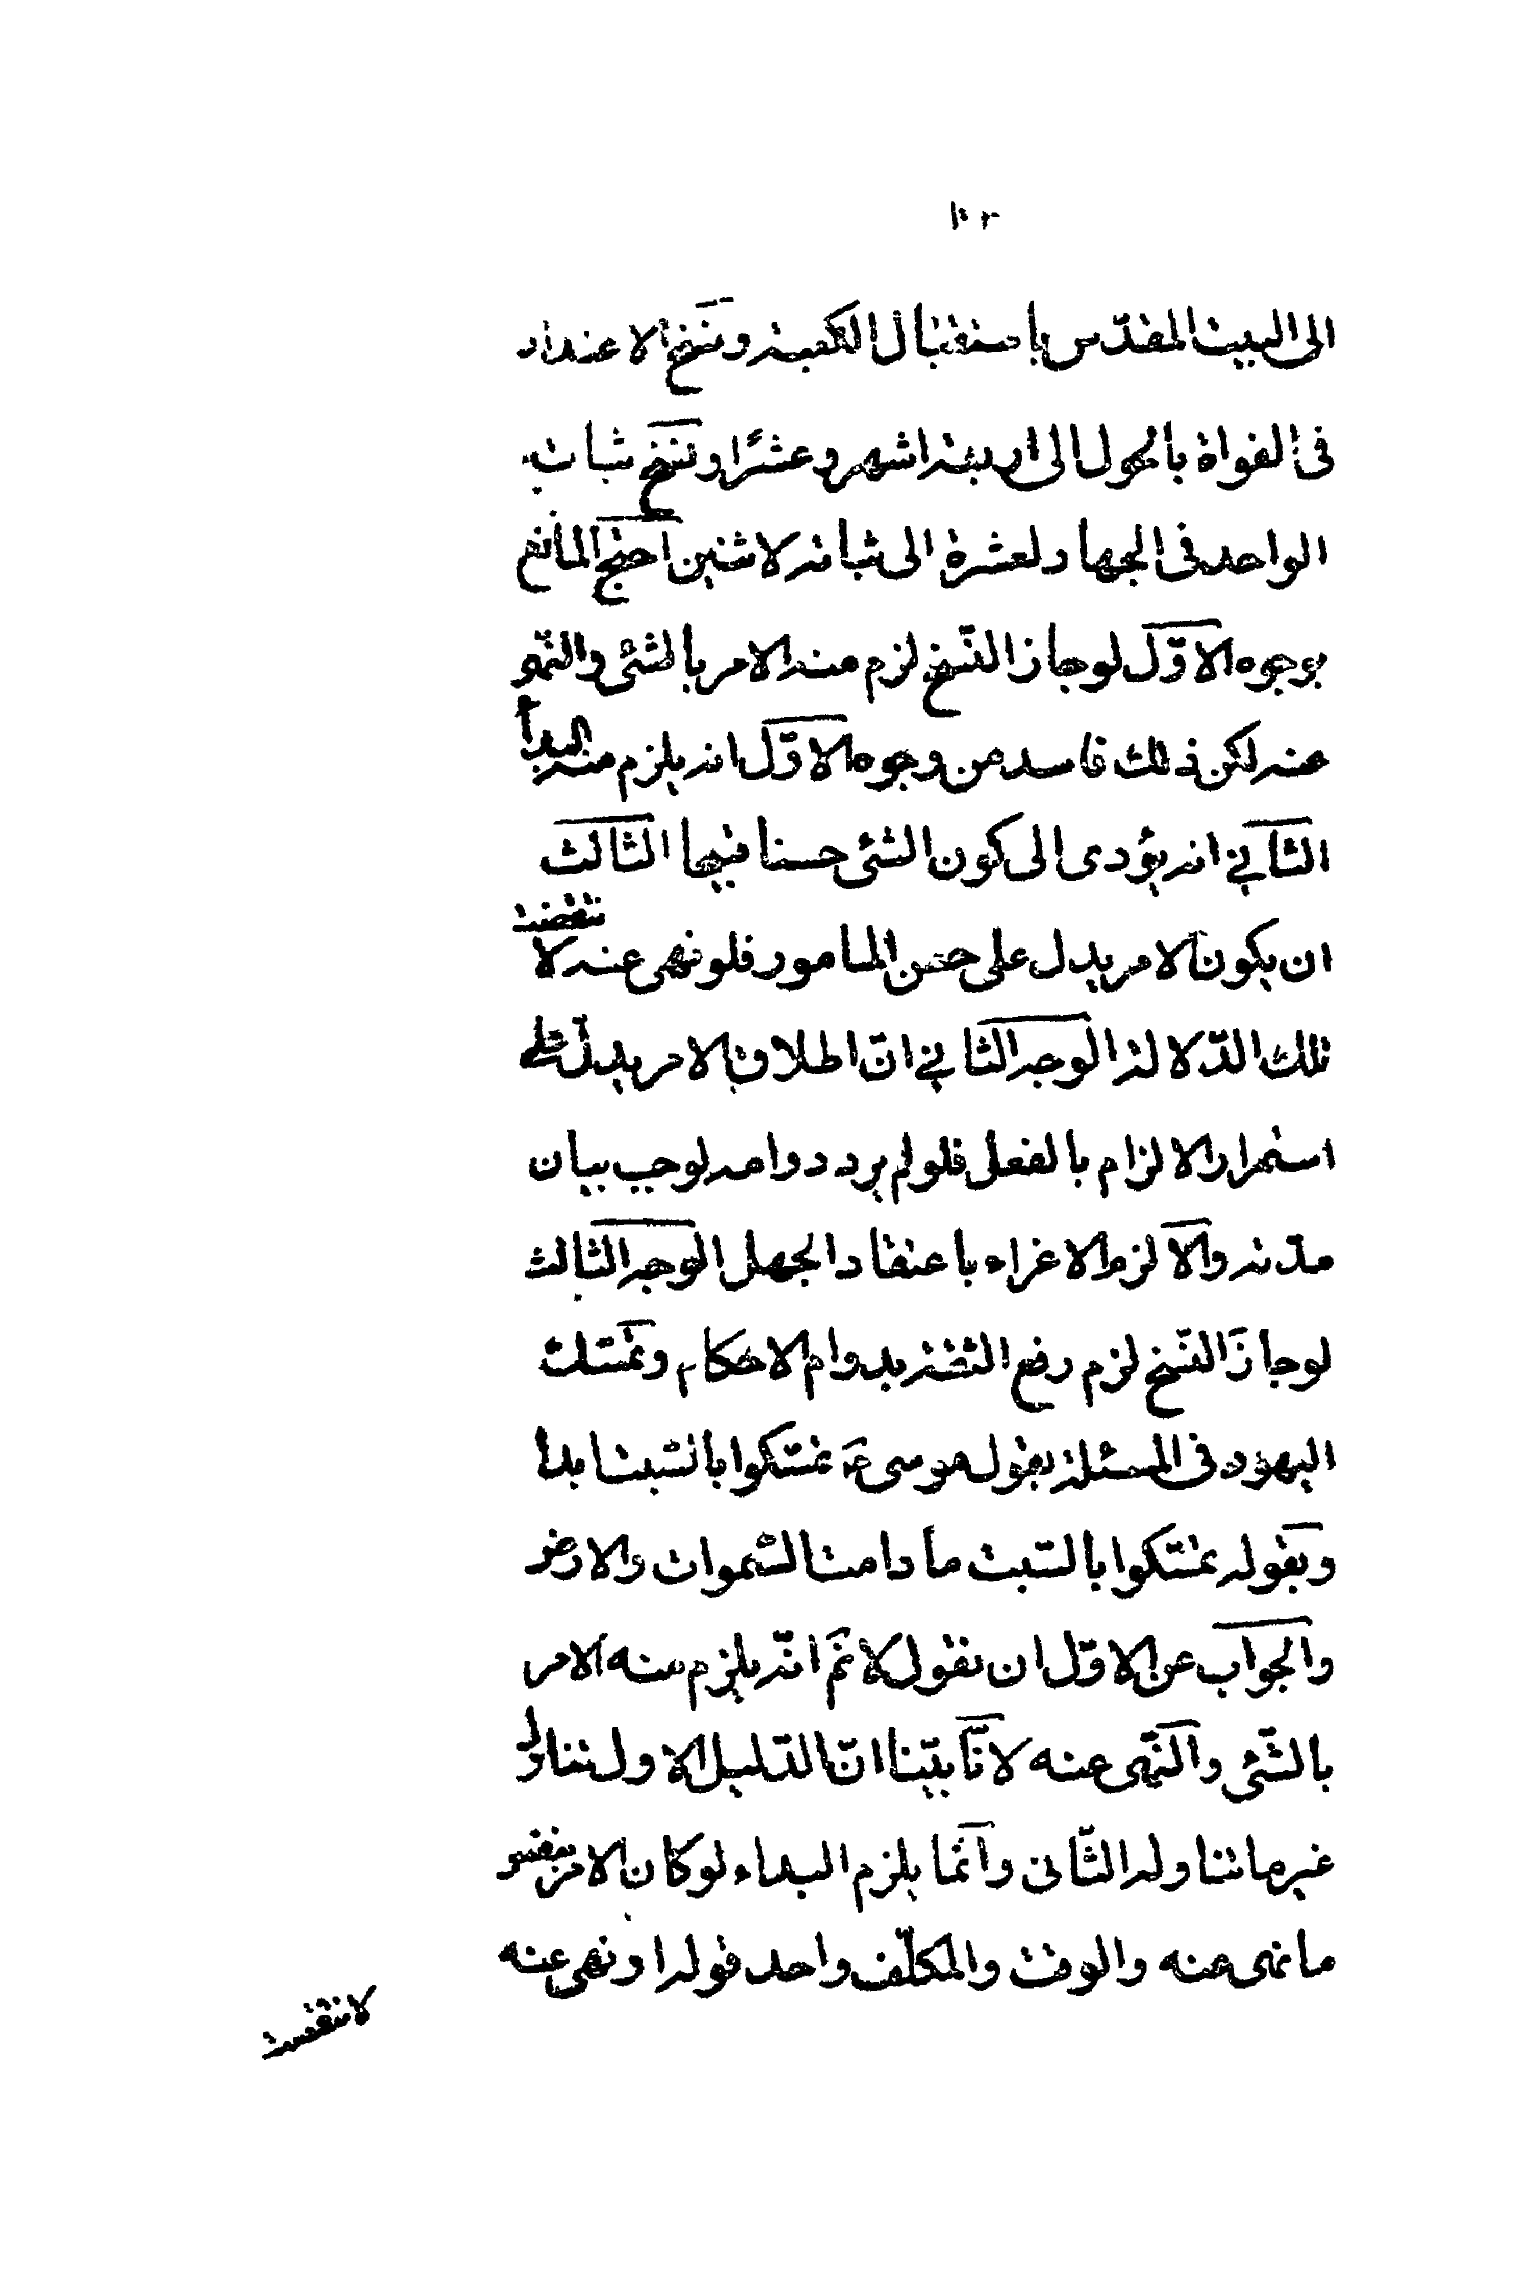 ١٠٢
الى البيت المقدّس باستقبال الكعبة ونسخ الاعتداد
فى الفواة بالحول الى اربعة اشهر وعشرًا ونسخ ثبات
الواحد فى الجهاد لعشرة الى ثباته لاثنين احتج المانع
بوجوه الاوّل لو جاز النّسخ لزم منه الامر بالشئ والنّهى
عنه لكن ذلك فاسد من وجوه الاوّل انه يلزم منه البدأ
الثانى انه يؤدى الى كون الشئ حسنا قبيحا الثالث
ان يكون الامر يدل على حسن المامور فلو نهى عنه لانتقضت
تلك الدّلالة الوجه الثانى انّ اطلاق الامر يدلّ على
استمرار الالزام بالفعل فلو لم يرد دوامه لوجب بيان
مدّته والّا لزم الاغراء باعتقاد الجهل الوجه الثالث
لو جاز النّسخ لزم رفع الثقة بدوام الاحكام وتمسّك
اليهود فى المسئلة بقول موسى ع تمسّكوا بالسّبت ابدا
وبقوله تمسّكوا بالسّبت ما دامت السّموات والارض
والجواب عن الاوّل ان نقول لا نم انّه يلزم منه الامر
بالشّئ والنّهى عنه لانّا بيّنا انّ الدّليل الاول تناول
غير ما تناوله الثّانى وانّما يلزم البداء لو كان الامر بنفس
ما نهى عنه والوقت والمكلّف واحد قوله او نهى عنه
لانتقضت